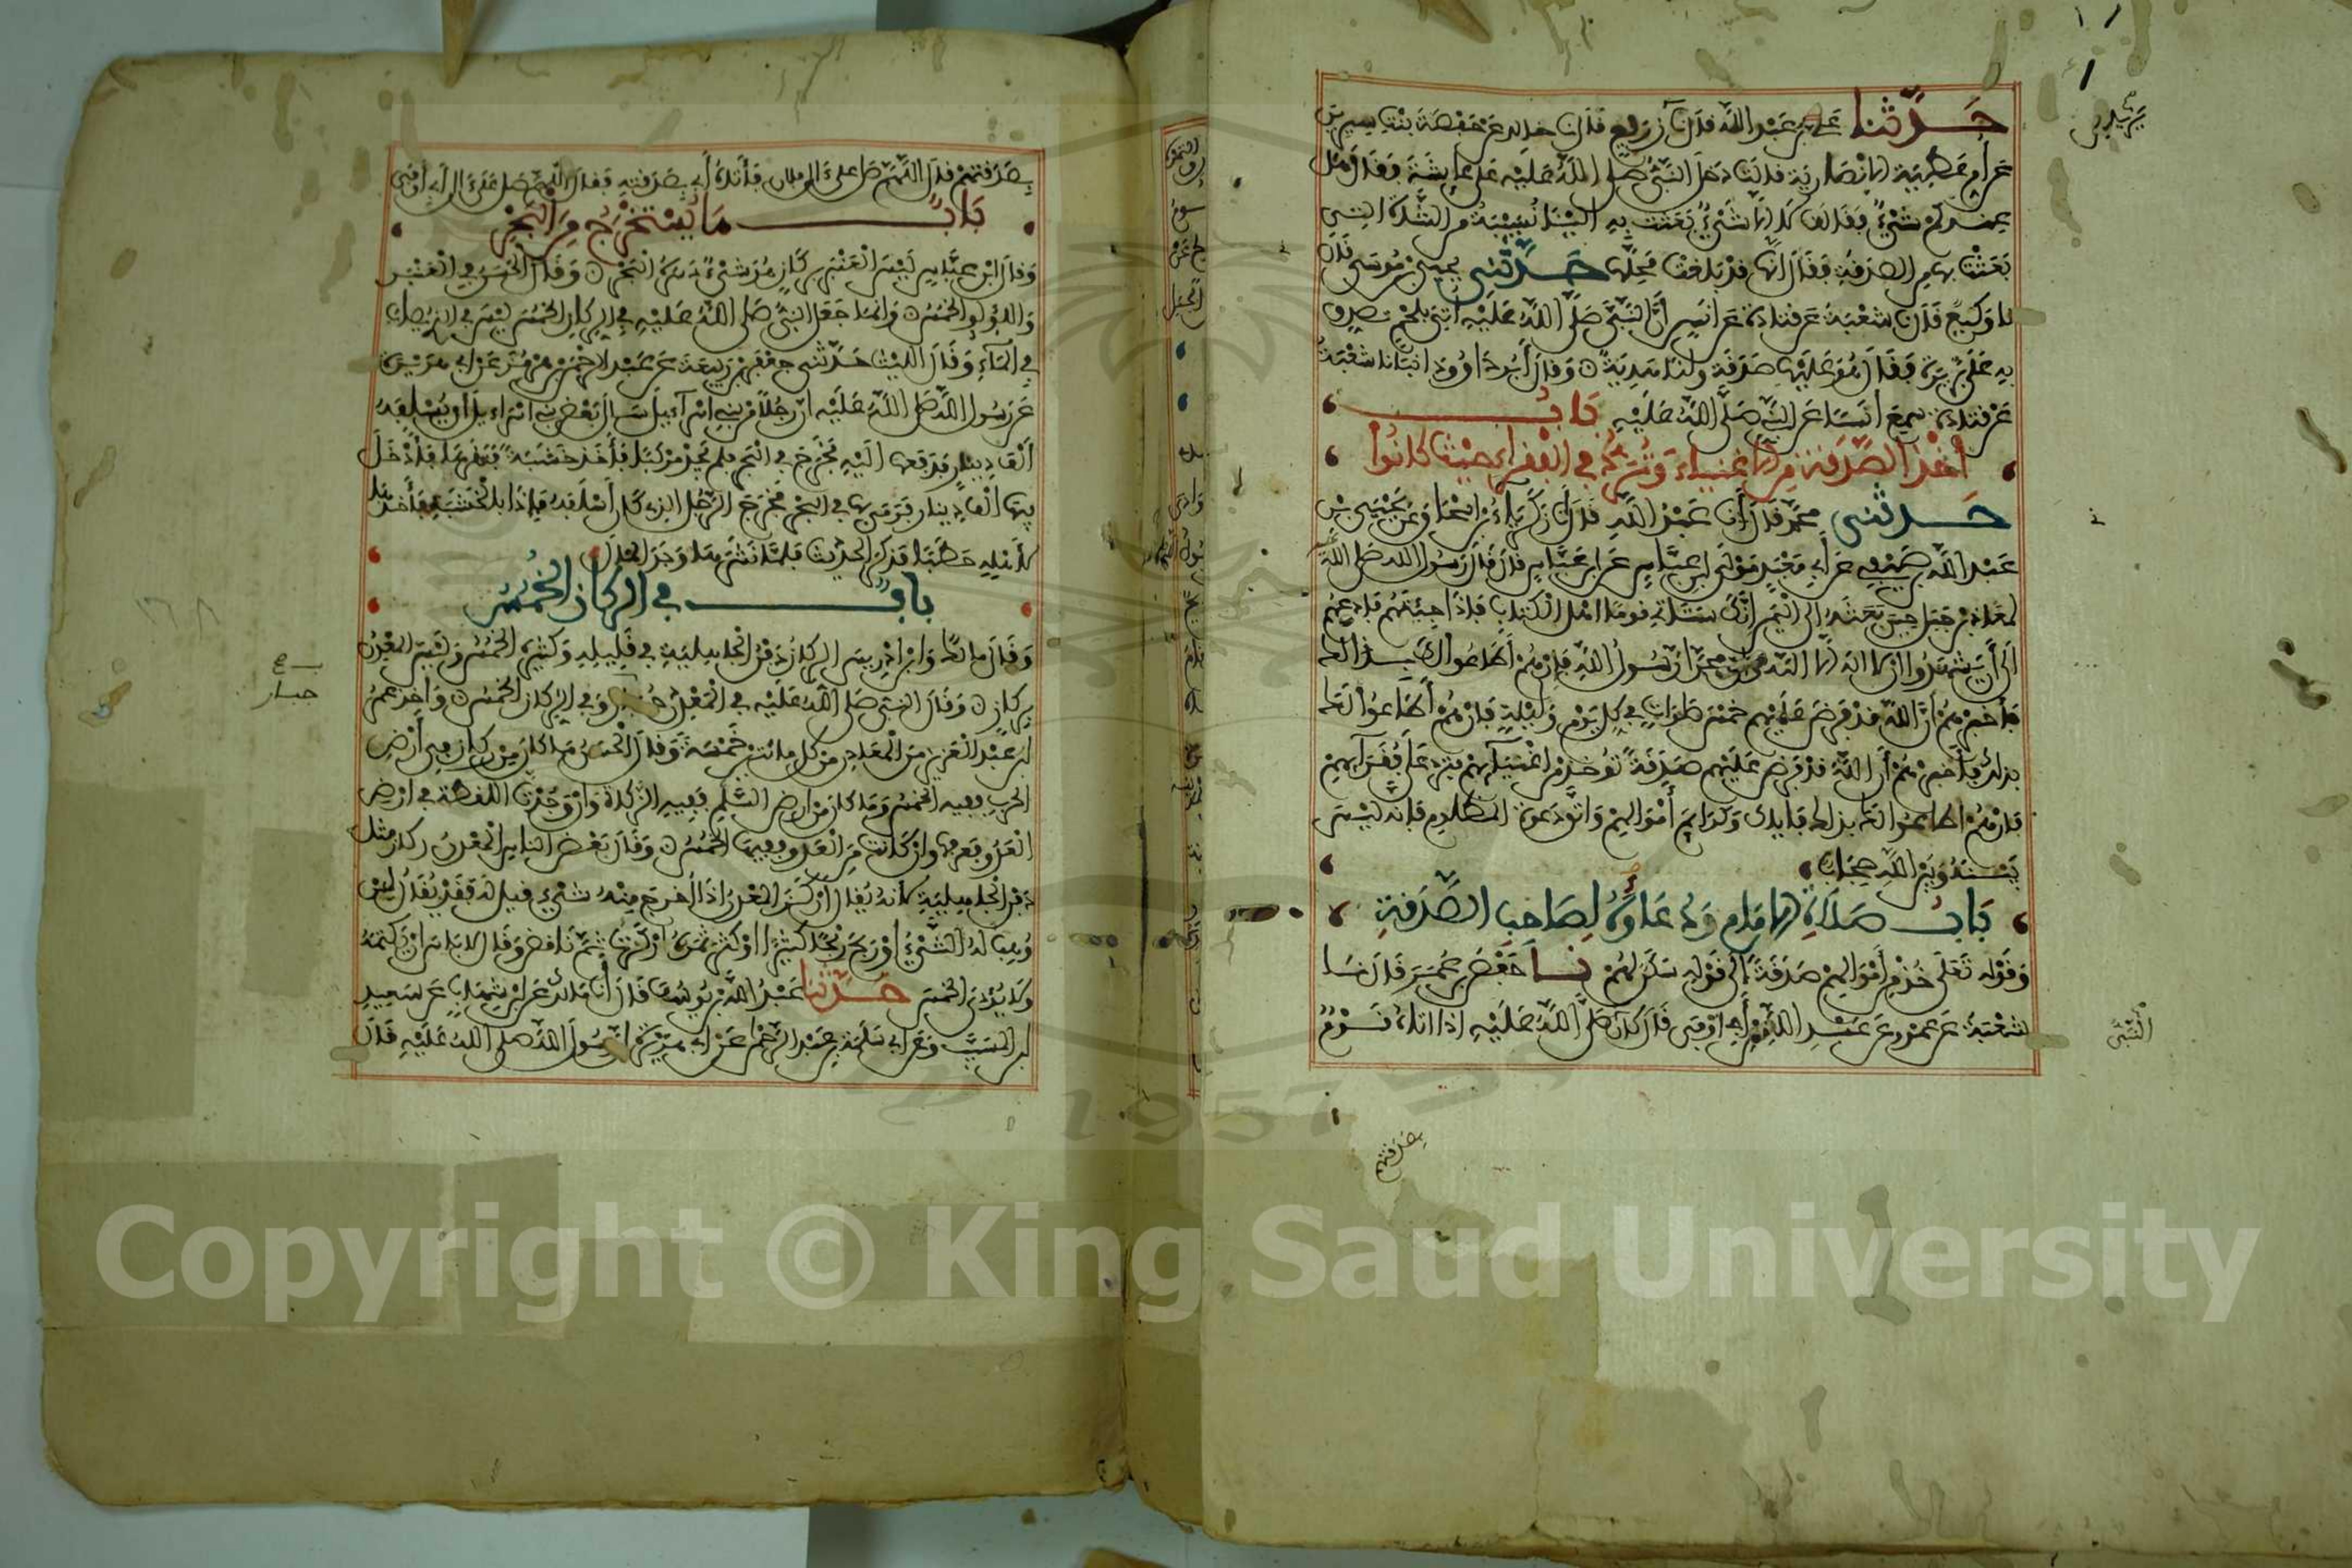 حَدَّثنا عَلي بن عَبْد اللَّه قال نا يزيد بن زريع قال نا خالد عن حفصة بنت سيرين
عن أم عطية الانصارية قالت دخل النبي صلى الله عليه على عايشة فقال هل
عندكم شيء فقالت لا الا شيء بعثت به الينا نسيبة من الشاة التي
بعثت بها من الصدقة فقال انها قد بلغت محلها حدثني يحيى بن موسى قال
نا وكيع قال نا شعبة عن قتادة عن انس ان النبي صلى الله عليه اتي بلحم تصدق
به على بريرة فقال هو عليها صدقة ولنا هدية وقال أبو داوود انبانا شعبة
عن قتادة سمع انسا عن النبي صلى الله عليه باب
أخذ الصدقة من الاغنياء وترد في الفقراء حيث كانوا
حدثني محمد قال أنا عبد الله قال نا زكرياء بن اسحاق عن يحيى بن
عبد الله بن صيفي عن أبي معبد مولى ابن عباس عن ابن عباس قال قال رسول الله صلى الله عليه
لمعاذ بن جبل حين بعثه الى اليمن إنك ستاتي قوما اهل الكتاب فإذا جئتهم فادعهم
الى أن يشهدوا ان لا اله الا الله وأن محمدا رسول الله فإن هم أطاعوا لك بذالك
فأخبرهم أن الله قد فرض عليهم خمس صلوات في كل يوم وليلة فإن هم أطاعوا لك
بذلك فأخبرهم أن الله قد فرض عليهم صدقة تؤخذ من اغنيائهم فترد على فقرائهم
فإن هم اطاعوا لك بذالك فإياك وكرايم أموالهم واتق دعوة المظلوم فإنه ليس
بينه وبين الله حجاب
باب صلاة الامام ودعاؤه لصاحب الصدقة
وقوله تعلى خذ من أموالهم صدقة الى قوله سكن لهم نا حفص بن عمر قال نا
شعبة عن عمرو عن عبد الله بن أبي اوفى قال كان صلى الله عليه اذا اتاه قوم
النبي
بصدقتهم
بصدقتهم قال اللهم صل على آل فلان فأتاه أبي بصدقته فقال اللهم صل على آل أبي أوفى
باب ما يستخرج من البحر
وقال ابن عباس ليس العنبر بركاز هو شيء دسره البحر وقال الحسن في العنبر
واللؤلؤ الخمس وانما جعل النبي صلى الله عليه في الركاز الخمس ليس في الذي يصاب
في الماء وقال الليث حدثني جعفر بن ربيعة عن عبد الرحمن بن هرمز عن أبي هريرة
عن رسول الله صلى الله عليه ان رجلا من بني اسرائيل سأل بعض بني اسرائيل أن يسلفه
ألف دينار فدفعها اليه فخرج في البحر فلم يجد مركبا فأخذ خشبة فنقرها فأدخل
فيها ألف دينار فرمى بها في البحر فخرج الرجل الذي كان أسلفه فإذا بالخشبة فأخذها
لأهله حطبا فذكر الحديث فلما نشرها وجد المال
باب في الركاز الخمس
وقال مالك وابن ادريس الركاز دفن الجاهلية في قليله وكثيره الخمس وليس المعدن
بركاز وقال النبي صلى الله عليه في المعدن جبار وفي الركاز الخمس وأخذ عمر
ابن عبد العزيز من المعادن من كل مائتين خمسة وقال الحسن ما كان من ركاز في أرض
الحرب ففيه الخمس وما كان من ارض السلم ففيه الزكاة وان وجدت اللقطة في ارض
العدو فعرفها وان كانت من العدو ففيها الخمس وقال بعض الناس المعدن ركاز مثل
دفن الجاهلية لأنه يقال أركز المعدن إذا أخرج منه شيء قيل له فقد يقال لمن
وهب له الشيء أو ربح ربحا كثيرا او كثر ثمره أركزت ثم ناقض وقال لا باس ان يكتمه
ولا يؤدي الخمس حدثنا عبد الله بن يوسف قال أنا مالك عن ابن شهاب عن سعيد
ابن المسيب وعن أبي سلمة بن عبد الرحمن عن أبي هريرة ان رسول الله صلى الله عليه قال
جبار
Copyright © King Saud University
1957